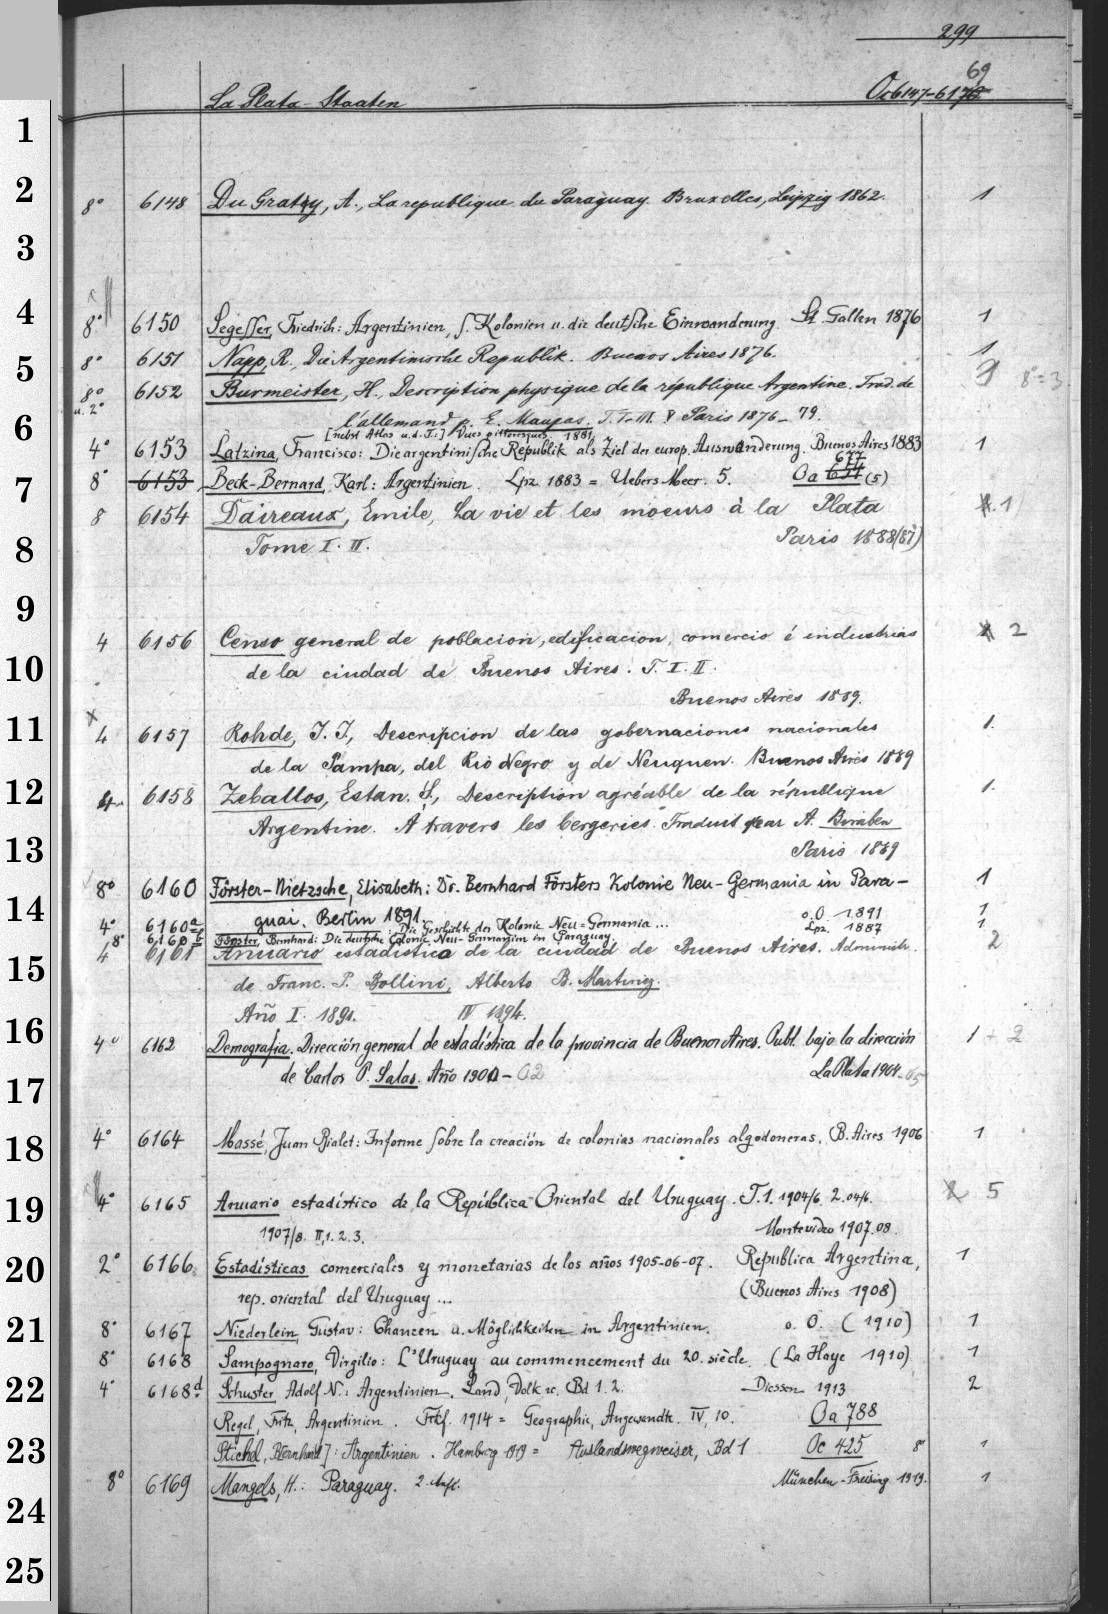 299
69
La Plata-Staaten Oc6147-6170
1
2
8° 6148 Du Graty, A., La republique du Paraguay. Bruxelles, Leipzig 1862. 1
3
4
8° 6150 Segesser, Friedrich: Argentinien, s. Kolonien u. die deutsche Einwanderung. St. Gallen 1876 1
5
8° 6151 Napp, R., Die Argentinische Republik. Buenos Aires 1876. 1
8° 6152 Burmeister, H., Description physique de la république Argentine. Trad. de 8°=3
u. 2°
6
l'allemand p. E. Maupas. T. I-III. V Paris 1876-79.
[nebst Atlas u.d.T.:] Vues pittoresques 1881
4° 6153 Latzina, Francisco: Die argentinische Republik als Ziel der europ. Auswanderung. Buenos Aires 1883 1
677
7
8° 6153 Beck-Bernard, Karl: Argentinien. Lpz. 1883 = Uebers Meer. 5. Oa (5)
8 6154 Daireaux, Emile, La vie et les moeurs à la Plata 1
8
Tome I. II. Paris 1888(87)
9
4 6156 Censo general de poblacion, edificacion, comercio é industrias 2
10
de la ciudad de Buenos Aires. T. I. II.
Buenos Aires 1889.
11
4 6157 Rohde, J. J., Descripcion de las gobernaciones nacionales 1.
de la Pampa, del Rio Negro y de Neuquen. Buenos Aires 1889
12
4 6158 Zeballos, Estan. S., Description agréable de la république 1.
Argentine. A travers les bergeries. Traduit par A. Biraben
13
Paris 1889
8° 6160 Förster-Nietzsche, Elisabeth: Dr. Bernhard Försters Kolonie Neu-Germania in Para- 1
14
guai. Berlin 1891.
4° 6160a : Die Geschichte der Kolonie Neu-Germania ... o.O. 1891 1
8° 6160b Förster, Bernhard: Die deutsche Colonie Neu-Germanien in Paraguay. Lpz. 1887 1
4 6161 Anuario estadistico de la ciudad de Buenos Aires. Administr. 2
15
de Franc. P. Bollini, Alberto B. Martinez.
Año I. 1891. IV 1894.
16
4° 6162 Demografia. Dirección general de estadística de la provincia de Buenos Aires. Publ. bajo la dirección 1 + 2
de Carlos P. Salas. Año 1900-02 La Plata 1904-05
17
18
4° 6164 Massé, Juan Bialet: Informe sobre la creación de colonias nacionales algodoneras. B. Aires 1906 1
19
4° 6165 Anuario estadístico de la República Oriental del Uruguay. T. 1. 1904/6. 2. 04/6. 5
1907/8. II,1. 2. 3. Montevideo 1907.08.
20
2° 6166 Estadísticas comerciales y monetarias de los años 1905-06-07. Republica Argentina, 1
rep. oriental del Uruguay ... (Buenos Aires 1908)
21
8° 6167 Niederlein, Gustav: Chancen u. Möglichkeiten in Argentinien. o. O. (1910) 1
8° 6168 Sampognaro, Virgilio: L'Uruguay au commencement du 20. siècle. (La Haye 1910) 1
22
4° 6168d Schuster, Adolf N.: Argentinien. Land, Volk etc. Bd 1. 2. Diessen 1913 2
Regel, Fritz, Argentinien. Frkf. 1914 = Geographie, Angewandte. IV, 10. Oa 788
23
Stichel, B[ernhard]: Argentinien. Hamburg 1919 = Auslandswegweiser, Bd 1 Oc 425 8° 1
8° 6169 Mangels, H.: Paraguay. 2. Aufl. München-Freising 1919. 1
24
25